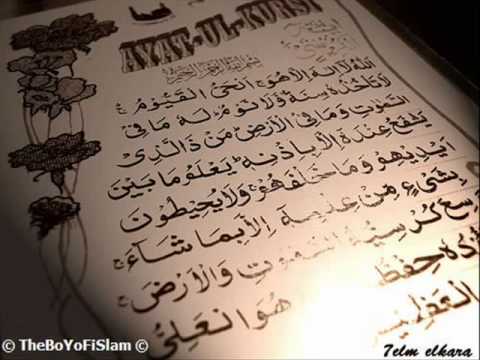 AYAT-UL-KURSI
بسم الله الرحمن الرحيم
اَللّٰهُ لَآ اِلٰهَ اِلَّا هُوَ ۚ اَلْحَيُّ الْقَيُّوْمُ ۚ
لَا تَاْخُذُهٗ سِنَةٌ وَّلَا نَوْمٌ ؕ لَهٗ مَا فِي
السَّمٰوٰتِ وَمَا فِي الْاَرْضِ ؕ مَنْ ذَا الَّذِيْ
يَشْفَعُ عِنْدَهٗٓ اِلَّا بِاِذْنِهٖ ؕ يَعْلَمُ مَا بَيْنَ
اَيْدِيْهِمْ وَمَا خَلْفَهُمْ ۚ وَلَا يُحِيْطُوْنَ
بِشَيْءٍ مِّنْ عِلْمِهٖٓ اِلَّا بِمَا شَآءَ ۚ
سِعَ كُرْسِيُّهُ السَّمٰوٰتِ وَالْاَرْضَ ۚ
ُٔدُهٗ حِفْظُ هُوَ الْعَلِيُّ
الْعَظِيْمُ
© TheBoYoFiSlam ©
7elm elkara